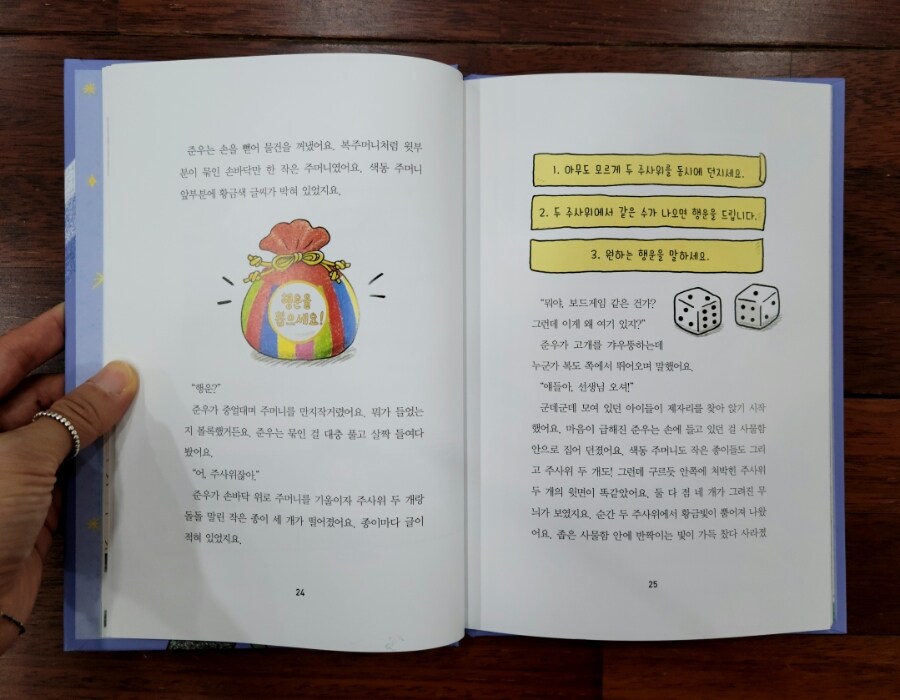 준우는 손을 뻗어 물건을 꺼냈어요. 복주머니처럼 윗부
분이 묶인 손바닥만 한 작은 주머니였어요. 색동 주머니
앞부분에 황금색 글씨가 박혀 있었지요.
행운을
뽑으세요!
“행운?”
준우가 중얼대며 주머니를 만지작거렸어요. 뭐가 들었는
지 볼록했거든요. 준우는 묶인 걸 대충 풀고 살짝 들여다
봤어요.
“어, 주사위잖아.”
준우가 손바닥 위로 주머니를 기울이자 주사위 두 개랑
돌돌 말린 작은 종이 세 개가 떨어졌어요. 종이마다 글이
적혀 있었지요.
24
1. 아무도 모르게 두 주사위를 동시에 던지세요.
2. 두 주사위에서 같은 수가 나오면 행운을 드립니다.
3. 원하는 행운을 말하세요.
“뭐야, 보드게임 같은 건가?
그런데 이게 왜 여기 있지?”
준우가 고개를 갸우뚱하는데
누군가 복도 쪽에서 뛰어오며 말했어요.
“얘들아, 선생님 오셔!”
군데군데 모여 있던 아이들이 제자리를 찾아 앉기 시작
했어요. 마음이 급해진 준우는 손에 들고 있던 걸 사물함
안으로 집어 던졌어요. 색동 주머니도 작은 종이들도 그리
고 주사위 두 개도! 그런데 구르듯 안쪽에 처박힌 주사위
두 개의 윗면이 똑같았어요. 둘 다 점 네 개가 그려진 무
늬가 보였지요. 순간 두 주사위에서 황금빛이 뿜어져 나왔
어요. 좁은 사물함 안에 반짝이는 빛이 가득 찼다 사라졌
25